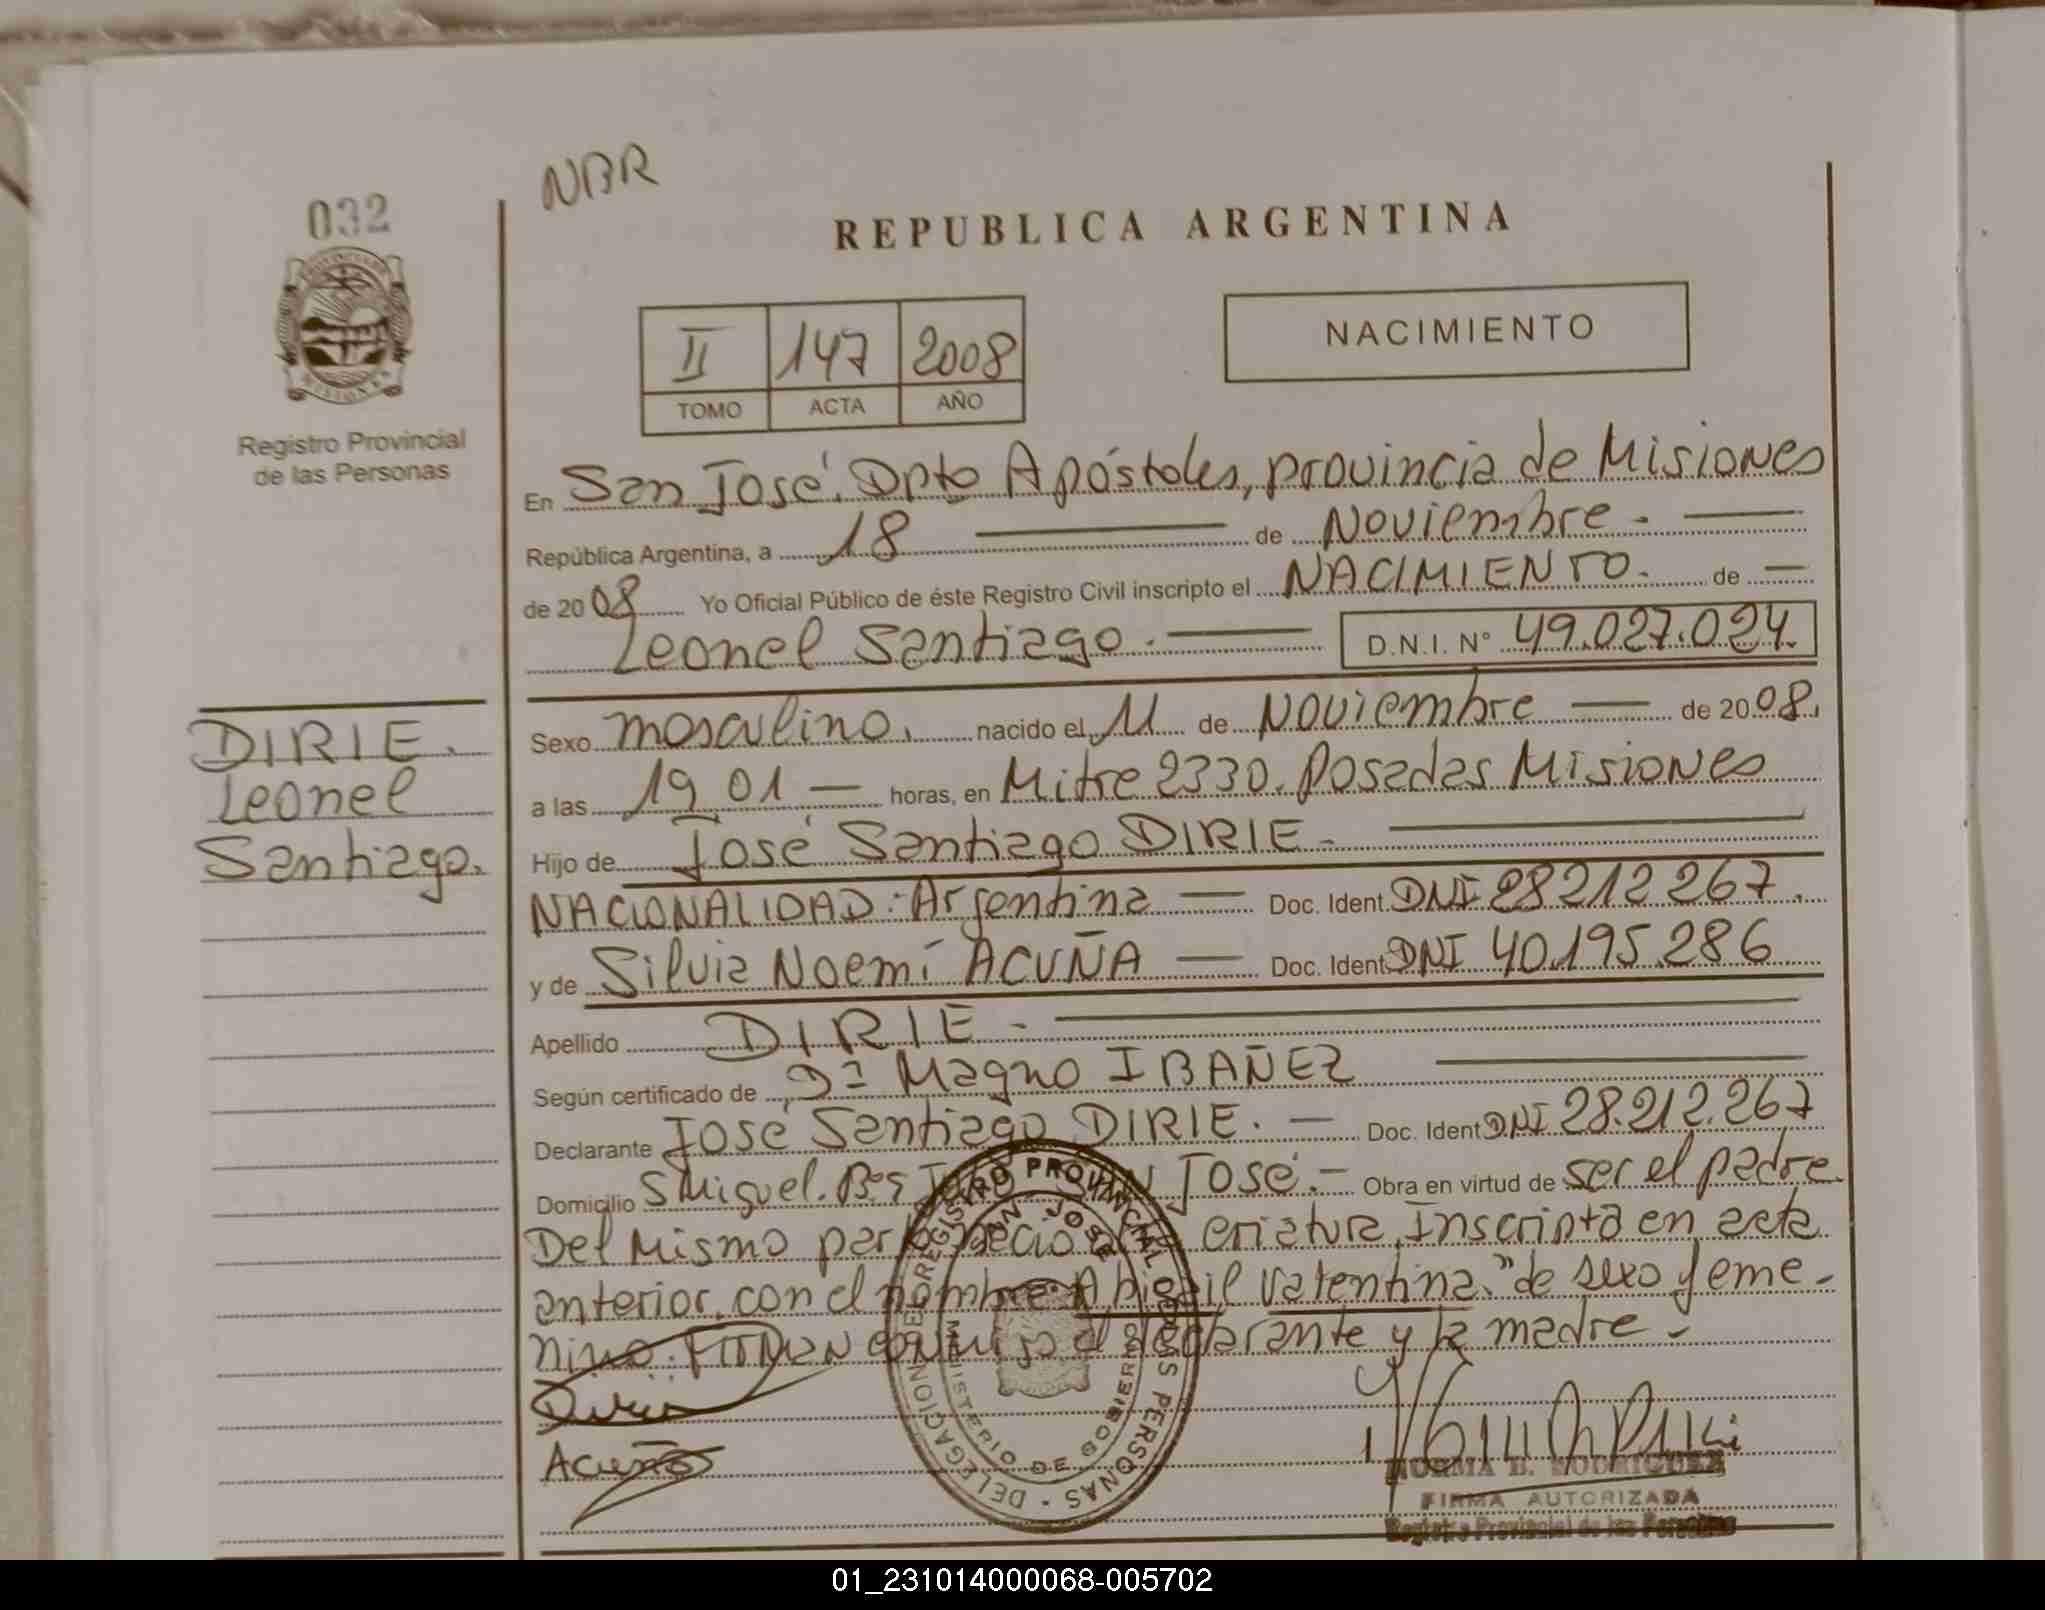 NBR
032
REPUBLICA ARGENTINA
II 147 2008
TOMO ACTA AÑO
NACIMIENTO
Registro Provincial
de las Personas
En San José. Dpto Apóstoles, provincia de Misiones
República Argentina, a 18 de Noviembre.
de 2008 Yo Oficial Público de éste Registro Civil inscripto el NACIMIENTO. de
Leonel Santiago. D.N.I. N° 49.027.024.
DIRIE.
Leonel
Santiago.
Sexo masculino. nacido el 11 de Noviembre de 2008.
a las 19 01 horas, en Mitre 2330. Posadas Misiones
Hijo de José Santiago DIRIE.
NACIONALIDAD: Argentina Doc. Ident. DNI 28 212 267.
y de Silvia Noemí ACUÑA Doc. Ident DNI 40.195.286
Apellido DIRIE.
Según certificado de Magno IBAÑEZ
Declarante José Santiago DIRIE. Doc. Ident DNI 28.212.267
Domicilio S Miguel. José. Obra en virtud de ser el padre
Del Mismo criatura, Inscripta en acta
anterior, con el nombre Abigail Valentina." de sexo feme-
nino. Firman conmigo el declarante y la madre
Acuña
REGISTRO PROVINCIAL DE LAS PERSONAS - DELEGACION
SAN JOSE
MINISTERIO DE GOBIERNO
NORMA B. RODRIGUEZ
FIRMA AUTORIZADA
Registro Provincial de las Personas
01_231014000068-005702